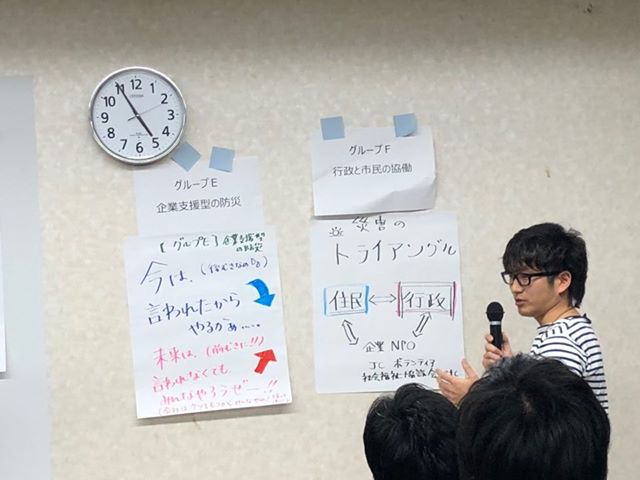 12
11
1
10
2
9
3
8
4
7
5
6
グループE
企業支援型の防災
【グループE】企業支援型
の防災
今は、
言われたから
やるかぁ….
未来は、(前むきに!!)
言われなくても
みんなやろうぜー!!
グループF
行政と市民の協働
災害の
トライアングル
住民 ⇔ 行政
企業 NPO
JC ボランティア
社会福祉協議会